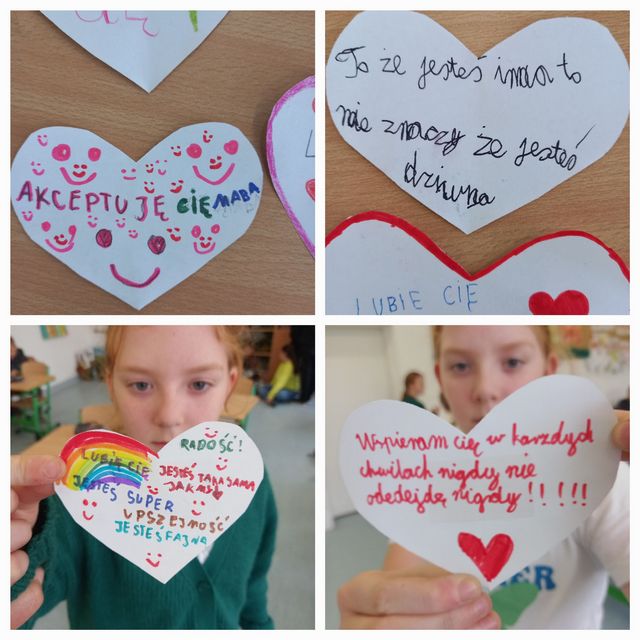 AKCEPTUJĘ CIĘ MABA
To że jesteś inna to
nie znaczy że jesteś
dziwna
LUBIE CIĘ
LUBIE CIĘ
RADOŚĆ!
JESTEŚ TAKA SAMA
JAK MY
JESTEŚ SUPER
UPSZEJMOŚĆ
JESTEŚ FAJNA
Wspieram cię w karzdych
chwilach nigdy nie
odedejdę nigdy!!!!!